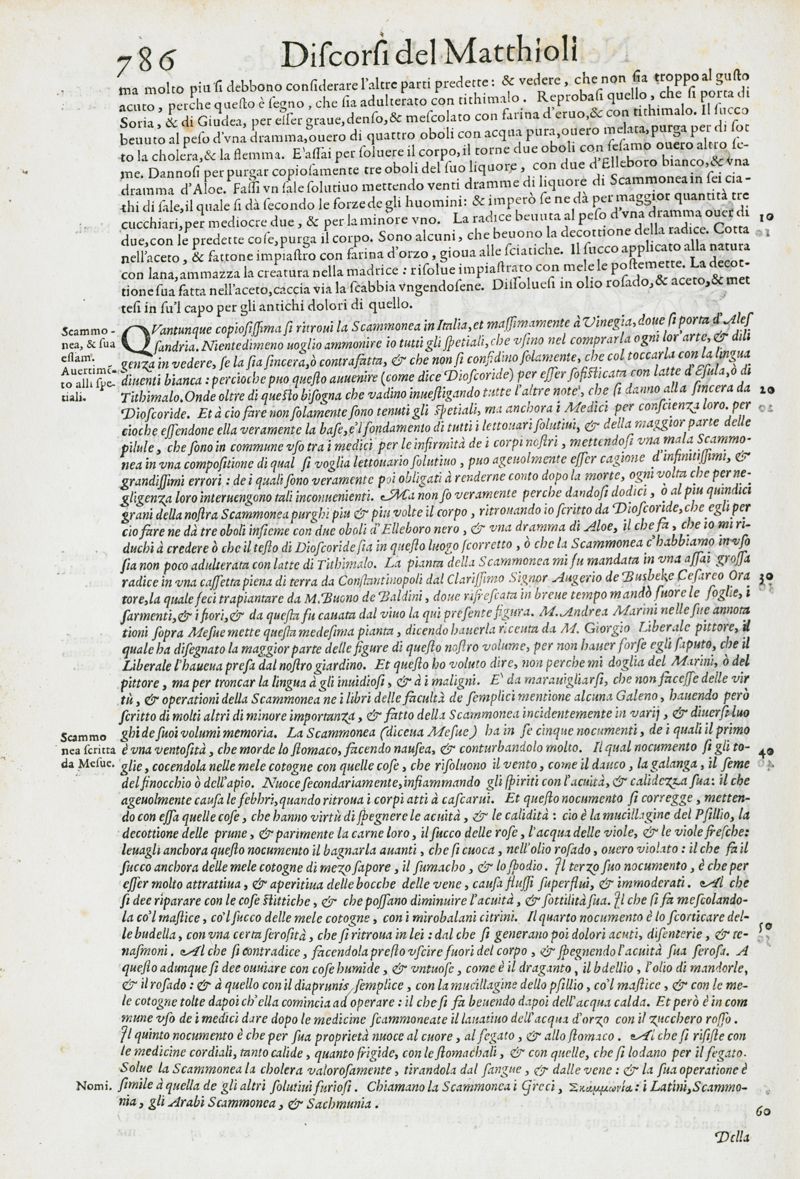 786
Diſcorſi del Matthioli
ma molto piu ſi debbono conſiderare l'altre parti predette: & vedere, che non ſia troppo al guſto
acuto, perche queſto è ſegno, che ſia adulterato con tithimalo. Reprobaſi quello, che ſi porta di
Soria, & di Giudea, per eſſer graue, denſo, & meſcolato con farina d'eruo, & con tithimalo. Il ſucco
beuuto al peſo d'vna dramma, ouero di quattro oboli con acqua pura, ouero melata, purga per di ſot
to la cholera, & la flemma. E' aſſai per ſoluere il corpo, il torne due oboli con ſeſamo ouero altro ſe-
me. Dannoſi per purgar copioſamente tre oboli del ſuo liquore, con due d'Elleboro bianco, & vna
dramma d'Aloe. Faſſi vn ſale ſolutiuo mettendo venti dramme di liquore di Scammonea in ſei cia-
thi di ſale, il quale ſi dà ſecondo le forze de gli huomini: & imperò ſe ne dà per maggior quantità tre
cucchiari, per mediocre due, & per la minore vno. La radice beuuta al peſo d'vna dramma ouer di
10
due, con le predette coſe, purga il corpo. Sono alcuni, che beuono la decottione della radice. Cotta
nell'aceto, & fattone impiaſtro con farina d'orzo, gioua alle ſciatiche. Il ſucco applicato alla natura
con lana, ammazza la creatura nella madrice: riſolue impiaſtrato con mele le poſtemette. La decot-
tione ſua fatta nell'aceto, caccia via la ſcabbia vngendoſene. Diſſolueſi in olio roſado, & aceto, & met
teſi in ſu'l capo per gli antichi dolori di quello.
Scammo-
nea, & ſua
eſſam.
Auertimẽ-
to alli ſpe-
tiali.
QVantunque copioſiſſima ſi ritroui la Scammonea in Italia, et maſſimamente à Vinegia, doue ſi porta d'Aleſ
ſandria. Nientedimeno uoglio ammonire io tutti gli ſpetiali, che vſino nel comprarla ogni lor'arte, & dili
genza in vedere, ſe la ſia ſincera, ò contrafatta, & che non ſi confidino ſolamente, che col toccarla con la lingua
diuenti bianca: percioche puo queſto auuenire (come dice Dioſcoride) per eſſer ſofiſticata con latte d'Eſula, ò di
Tithimalo. Onde oltre di queſto biſogna che vadino inueſtigando tutte l'altre note, che ſi danno alla ſincera da
20
Dioſcoride. Et à cio fare non ſolamente ſono tenuti gli ſpetiali, ma anchora i Medici per conſcienza loro. per
cioche eſſendone ella veramente la baſe, e'l fondamento di tutti i lettouari ſolutiui, & della maggior parte delle
pilule, che ſono in commune vſo tra i medici per le infirmità de i corpi noſtri, mettendoſi vna mala Scammo-
nea in vna compoſitione di qual ſi voglia lettouario ſolutiuo, puo ageuolmente eſſer cagione d'infinitiſſimi, &
grandiſſimi errori: de i quali ſono veramente poi obligati à renderne conto dopo la morte, ogni volta che per ne-
gligenza loro interuengono tali inconuenienti. Ma non ſo veramente perche dandoſi dodici, ò al piu quindici
grani della noſtra Scammonea purghi piu & piu volte il corpo, ritrouando io ſcritto da Dioſcoride, che egli per
cio fare ne dà tre oboli inſieme con due oboli d'Elleboro nero, & vna dramma di Aloe, il che fa, che io mi ri-
duchi à credere ò che il teſto di Dioſcoride ſia in queſto luogo ſcorretto, ò che la Scammonea c'habbiamo in vſo
ſia non poco adulterata con latte di Tithimalo. La pianta della Scammonea mi fu mandata in vna aſſai groſſa
radice in vna caſſetta piena di terra da Conſtantinopoli dal Clariſſimo Signor Augerio de Busbeke Ceſareo Ora
30
tore, la quale feci trapiantare da M. Buono de Baldini, doue rifreſcata in breue tempo mandò fuore le foglie, i
ſarmenti, & i fiori, & da queſta fu cauata dal viuo la qui preſente figura. M. Andrea Marini nelle ſue annota
tioni ſopra Meſue mette queſta medeſima pianta, dicendo hauerla riceuta da M. Giorgio Liberale pittore, il
quale ha diſegnato la maggior parte delle figure di queſto noſtro volume, per non hauer forſe egli ſaputo, che il
Liberale l'haueua preſa dal noſtro giardino. Et queſto ho voluto dire, non perche mi doglia del Marini, ò del
pittore, ma per troncar la lingua à gli inuidioſi, & à i maligni. E' da marauigliarſi, che non faceſſe delle vir
tù, & operationi della Scammonea ne i libri delle facultà de ſemplici mentione alcuna Galeno, hauendo però
ſcritto di molti altri di minore importanza, & fatto della Scammonea incidentemente in varij, & diuerſi luo
Scammo
nea ſcritta
da Meſue.
ghi de ſuoi volumi memoria. La Scammonea (diceua Meſue) ha in ſe cinque nocumenti, de i quali il primo
è vna ventoſità, che morde lo ſtomaco, facendo nauſea, & conturbandolo molto. Il qual nocumento ſi gli to-
40
glie, cocendola nelle mele cotogne con quelle coſe, che riſoluono il vento, come il dauco, la galanga, il ſeme
del finocchio ò dell'apio. Nuoce ſecondariamente, infiammando gli ſpiriti con l'acuità, & calidezza ſua: il che
ageuolmente cauſa le febbri, quando ritroua i corpi atti à caſcarui. Et queſto nocumento ſi corregge, metten-
do con eſſa quelle coſe, che hanno virtù di ſpegnere le acuità, & le calidità: cio è la mucillagine del Pſillio, la
decottione delle prune, & parimente la carne loro, il ſucco delle roſe, l'acqua delle viole, & le viole freſche:
leuagli anchora queſto nocumento il bagnarla auanti, che ſi cuoca, nell'olio roſado, ouero violato: il che fa il
ſucco anchora delle mele cotogne di mezo ſapore, il ſumacho, & lo ſpodio. Il terzo ſuo nocumento, è che per
eſſer molto attrattiua, & aperitiua delle bocche delle vene, cauſa fluſſi ſuperflui, & immoderati. Al che
ſi dee riparare con le coſe ſtittiche, & che poſſano diminuire l'acuità, & ſottilità ſua. Il che ſi fa meſcolando-
la co'l maſtice, co'l ſucco delle mele cotogne, con i mirobalani citrini. Il quarto nocumento è lo ſcorticare del-
50
le budella, con vna certa ſeroſità, che ſi ritroua in lei: dal che ſi generano poi dolori acuti, diſenterie, & te-
naſmoni. Al che ſi contradice, facendola preſto vſcire fuori del corpo, & ſpegnendo l'acuità ſua ſeroſa. A
queſto adunque ſi dee ouuiare con coſe humide, & vntuoſe, come è il draganto, il bdellio, l'olio di mandorle,
& il roſado: & à quello con il diaprunis ſemplice, con la mucillagine dello pſillio, co'l maſtice, & con le me-
le cotogne tolte dapoi ch'ella comincia ad operare: il che ſi fa beuendo dapoi dell'acqua calda. Et però è in com
mune vſo de i medici dare dopo le medicine ſcammoneate il lauatiuo dell'acqua d'orzo con il zucchero roſſo.
Il quinto nocumento è che per ſua proprietà nuoce al cuore, al fegato, & allo ſtomaco. Al che ſi riſiſte con
le medicine cordiali, tanto calide, quanto frigide, con le ſtomachali, & con quelle, che ſi lodano per il fegato.
Solue la Scammonea la cholera valoroſamente, tirandola dal ſangue, & dalle vene: & la ſua operatione è
Nomi.
ſimile à quella de gli altri ſolutiui furioſi. Chiamano la Scammonea i Greci, Σκαμμωνία: i Latini, Scammo-
nia, gli Arabi Scammonea, & Sachmunia.
60
Della